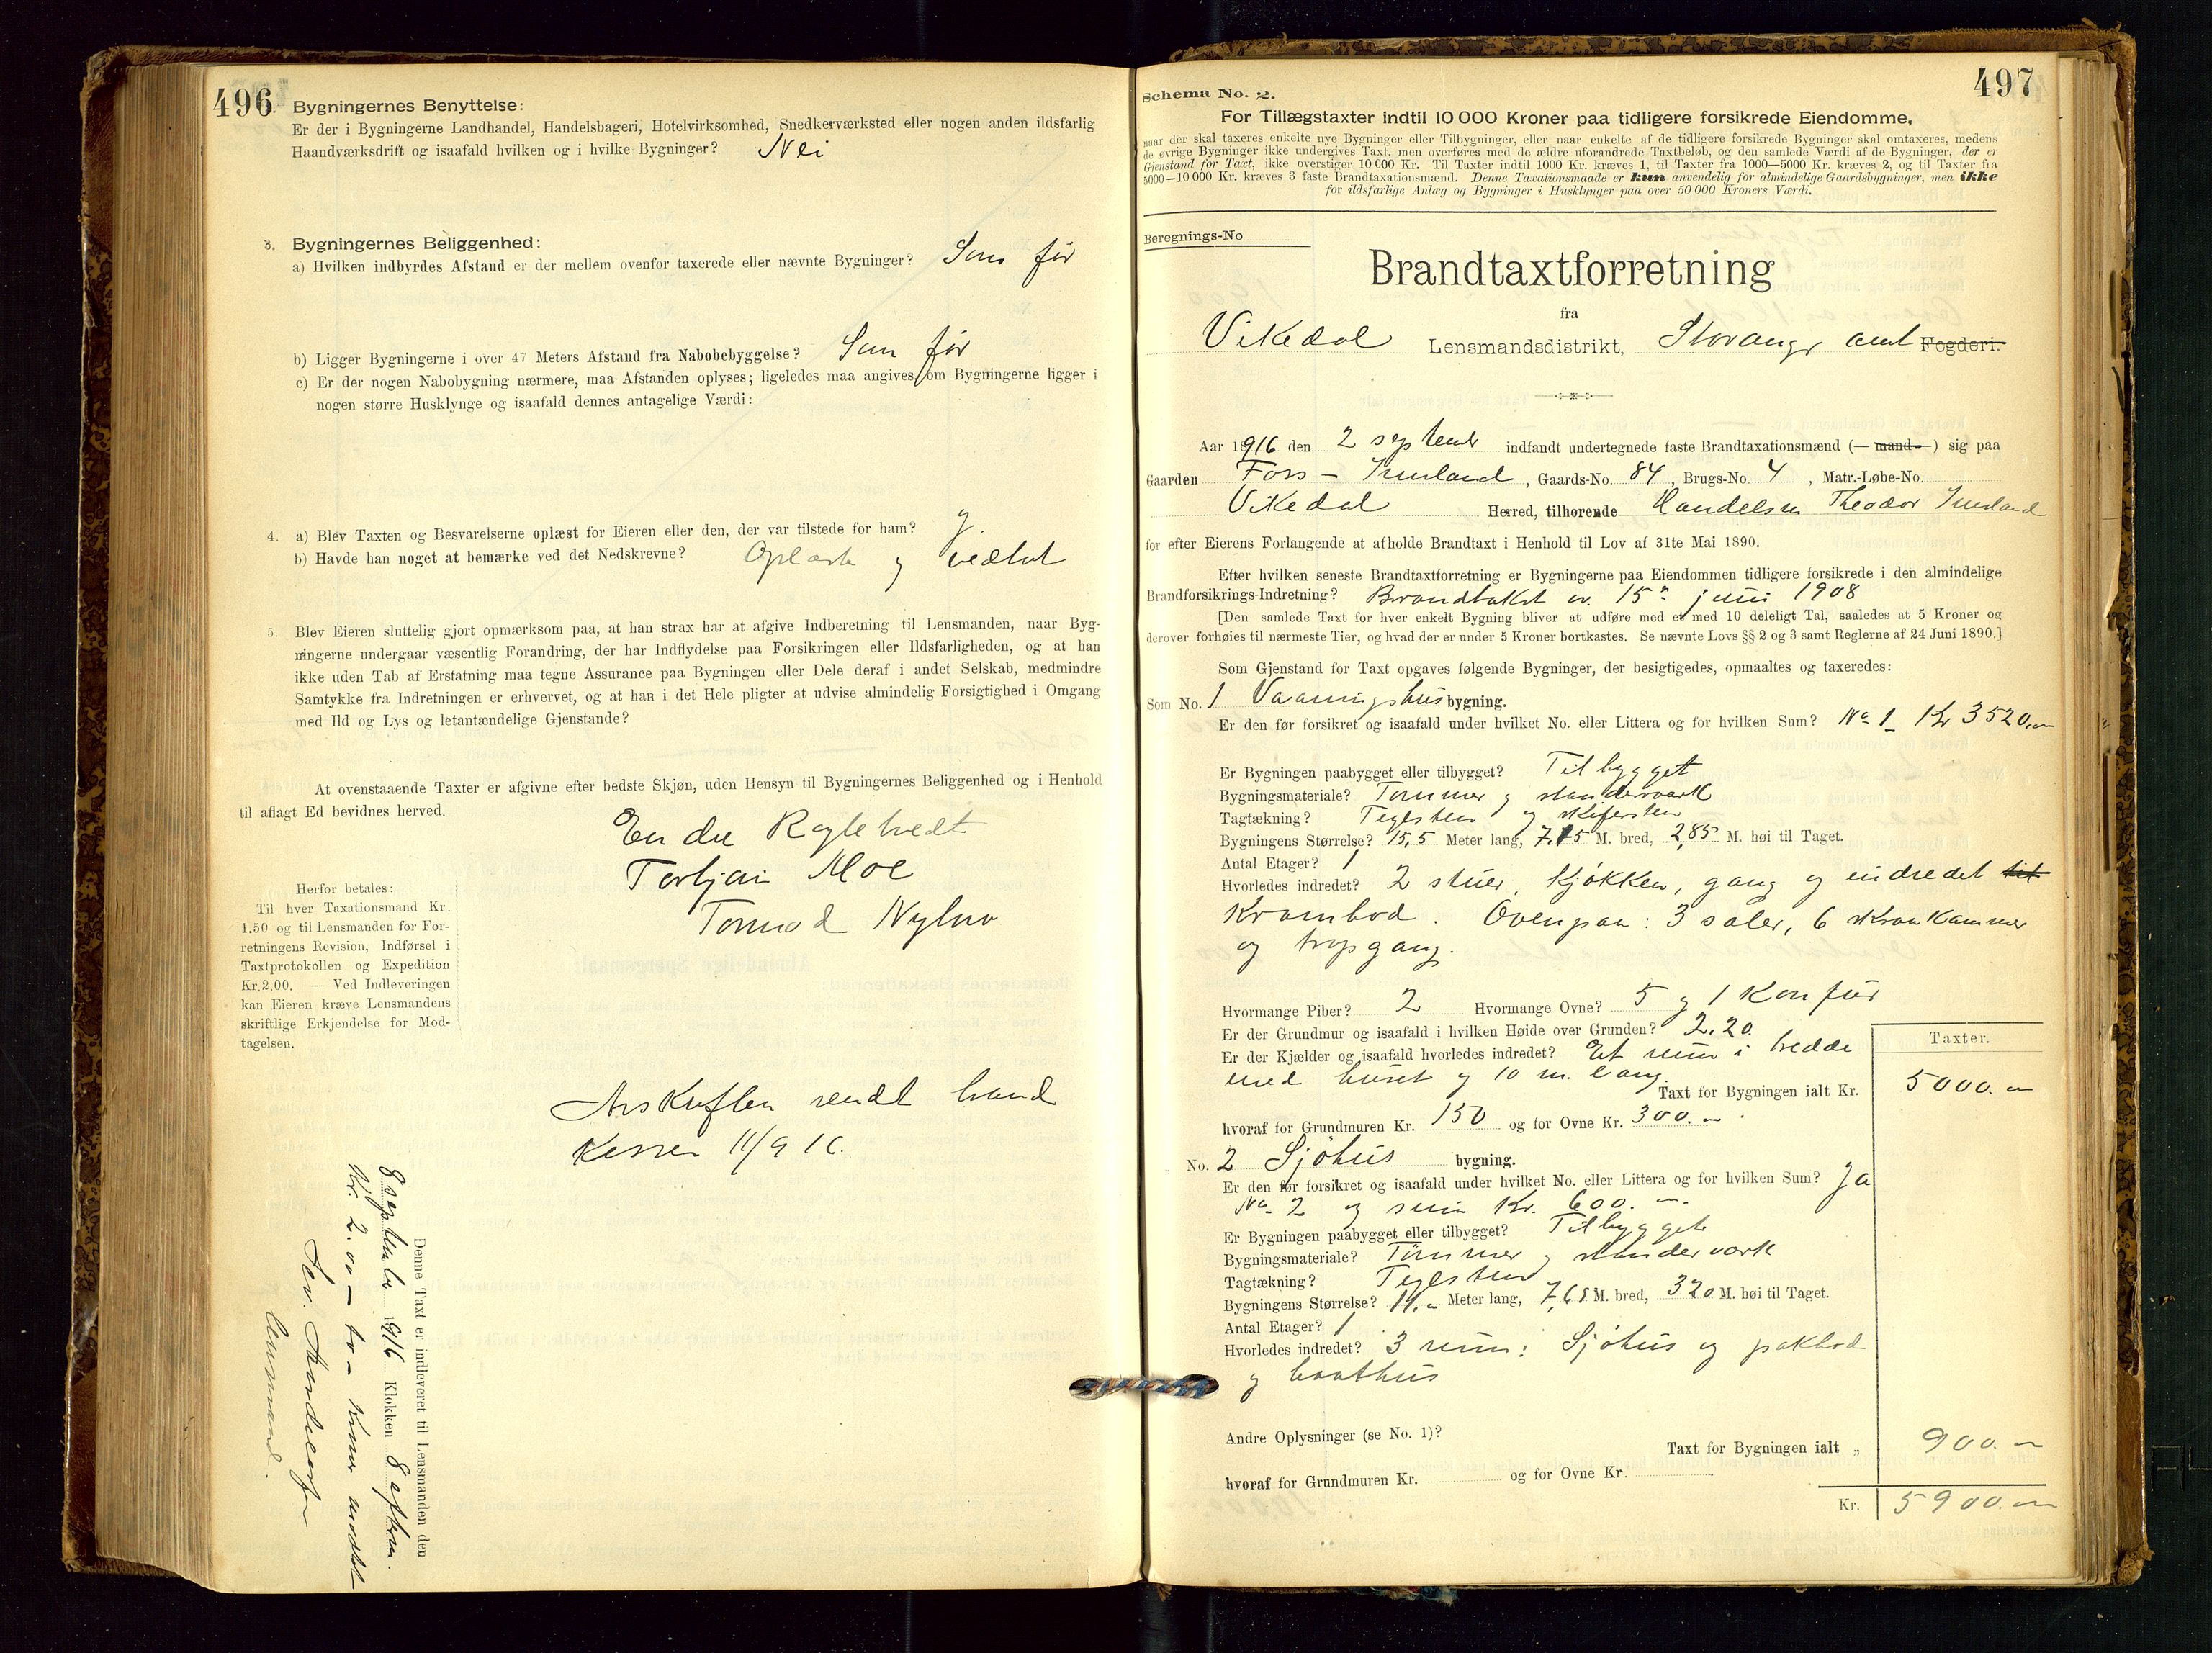 496
2. Bygningernes Benyttelse:
Er der i Bygningerne Landhandel, Handelsbageri, Hotelvirksomhed, Snedkerværksted eller nogen anden ildsfarlig
Haandværksdrift og isaafald hvilken og i hvilke Bygninger? Nei
3. Bygningernes Beliggenhed:
a) Hvilken indbyrdes Afstand er der mellem ovenfor taxerede eller nævnte Bygninger? Som før
b) Ligger Bygningerne i over 47 Meters Afstand fra Nabobebyggelse? Som før
c) Er der nogen Nabobygning nærmere, maa Afstanden oplyses; ligeledes maa angives, om Bygningerne ligger i
nogen større Husklynge og isaafald dennes antagelige Værdi:
4. a) Blev Taxten og Besvarelserne oplæst for Eieren eller den, der var tilstede for ham?
b) Havde han noget at bemærke ved det Nedskrevne? Oplæst og vedtat
5. Blev Eieren sluttelig gjort opmærksom paa, at han strax har at afgive Indberetning til Lensmanden, naar Byg-
ningerne undergaar væsentlig Forandring, der har Indflydelse paa Forsikringen eller Ildsfarligheden, og at han
ikke uden Tab af Erstatning maa tegne Assurance paa Bygningen eller Dele deraf i andet Selskab, medmindre
Samtykke fra Indretningen er erhvervet, og at han i det Hele pligter at udvise almindelig Forsigtighed i Omgang
med Ild og Lys og letantændelige Gjenstande?
At ovenstaaende Taxter er afgivne efter bedste Skjøn, uden Hensyn til Bygningernes Beliggenhed og i Henhold
til aflagt Ed bevidnes herved.
Endre
Torbjørn Moe
Tormod
Herfor betales:
Til hver Taxationsmand Kr.
1.50 og til Lensmanden for For-
retningens Revision, Indførsel i
Taxtprotokollen og Expedition
Kr. 2.00. — Ved Indleveringen
kan Eieren kræve Lensmandens
skriftlige Erkjendelse for Mod-
tagelsen.
Avskriften sendt brand
kassen 11/9 16.
Denne Taxt er indleveret til Lensmanden den
8 september 1916 Klokken 8 efterm.
Kr. 2.00 — to — kroner modtat
lensmand.
497
Schema No. 2.
For Tillægstaxter indtil 10 000 Kroner paa tidligere forsikrede Eiendomme,
naar der skal taxeres enkelte nye Bygninger eller Tilbygninger, eller naar enkelte af de tidligere forsikrede Bygninger skal omtaxeres, medens
de øvrige Bygninger ikke undergives Taxt, men overføres med de ældre uforandrede Taxtbeløb, og den samlede Værdi af de Bygninger, der er
Gjenstand for Taxt, ikke overstiger 10 000 Kr. Til Taxter indtil 1000 Kr. kræves 1, til Taxter fra 1000—5000 Kr. kræves 2, og til Taxter fra
5000—10 000 Kr. kræves 3 faste Brandtaxationsmænd. Denne Taxationsmaade er kun anvendelig for almindelige Gaardsbygninger, men ikke
for ildsfarlige Anlæg og Bygninger i Husklynger paa over 50 000 Kroners Værdi.
Beregnings-No
Brandtaxtforretning
fra
Vikedal Lensmandsdistrikt, Stavanger amt Fogderi.
Aar 1916 den 2 september indfandt undertegnede faste Brandtaxationsmænd (— mand —) sig paa
Gaarden Fors - Imsland, Gaards-No. 84, Brugs-No. 4, Matr.-Løbe-No.
Vikedal Herred, tilhørende Handelsm Theodor Imsland
for efter Eierens Forlangende at afholde Brandtaxt i Henhold til Lov af 31te Mai 1890.
Efter hvilken seneste Brandtaxtforretning er Bygningerne paa Eiendommen tidligere forsikrede i den almindelige
Brandforsikrings-Indretning? Brandtakst av 15 juni 1908
[Den samlede Taxt for hver enkelt Bygning bliver at udføre med et med 10 deleligt Tal, saaledes at 5 Kroner og
derover forhøies til nærmeste Tier, og hvad der er under 5 Kroner bortkastes. Se nævnte Lovs §§ 2 og 3 samt Reglerne af 24 Juni 1890.]
Som Gjenstand for Taxt opgaves følgende Bygninger, der besigtigedes, opmaaltes og taxeredes:
Som No. 1 Vaaningshus bygning.
Er den før forsikret og isaafald under hvilket No. eller Littera og for hvilken Sum? No 1 Kr 3520.
Er Bygningen paabygget eller tilbygget? Tilbygget
Bygningsmateriale? Tømmer og standerværk
Tagtækning? Teglsten og skifersten
Bygningens Størrelse? 15,5 Meter lang, 7,15 M. bred, 2,85 M. høi til Taget.
Antal Etager? 1
Hvorledes indredet? 2 stuer, kjøkken, gang og indredet til
Krambod. Ovenpaa: 3 saler, 6 skraakammer
og trapgang.
Hvormange Piber? 2 Hvormange Ovne? 5 og 1 Komfur
Er der Grundmur og isaafald i hvilken Høide over Grunden? 2.20
Er der Kjælder og isaafald hvorledes indredet? Et rum i bredde
med huset og 10 m. lang.
Taxter.
Taxt for Bygningen ialt Kr. 5000.
hvoraf for Grundmuren Kr. 150 og for Ovne Kr. 300. —
No. 2 Sjøhus bygning.
Er den før forsikret og isaafald under hvilket No. eller Littera og for hvilken Sum? Ja
No 2 og sum Kr. 600. —
Er Bygningen paabygget eller tilbygget? Tilbygget
Bygningsmateriale? Tømmer og standerværk
Tagtækning? Teglsten
Bygningens Størrelse? 14. Meter lang, 7,65 M. bred, 320 M. høi til Taget.
Antal Etager? 1
Hvorledes indredet? 3 rum: Sjøhus og pakbod
og baathus
Andre Oplysninger (se No. 1)?
Taxt for Bygningen ialt „ 900. —
hvoraf for Grundmuren Kr. og for Ovne Kr.
Kr. 5900. —